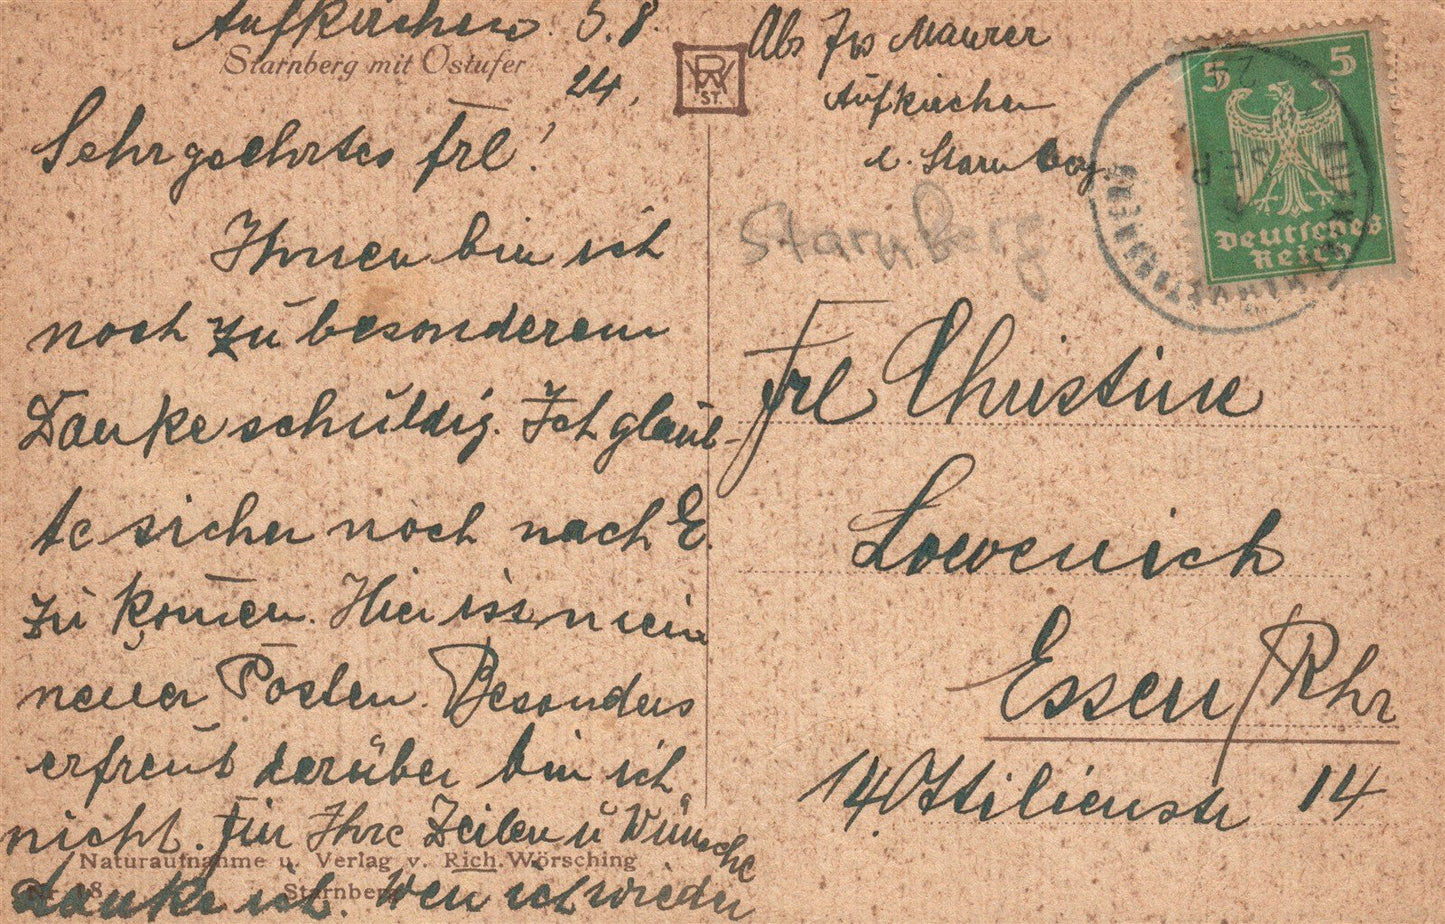 Aufkirchen. 5.8.
24.
Starnberg mit Ostufer
Sehrgeehrtes Frl!
Ihnen bin ich
noch zu besonderem
Danke schuldig. Ich glaub-
te sicher noch nach E.
zu kom̄en. Hier ist mein
neuer Posten. Besonders
erfreut darüber bin ich
nicht. Für Ihre Zeilen u Wünsche
danke ich. Wen ich wieder
Naturaufnahme u. Verlag v. Rich. Wörsching
Nr. 18 Starnberg
ST.
Abs Jos Maurer
Aufkirchen
b. Starnberg
Starnberg
5 5
Deutsches
Reich
Frl Christine
Loewenich
Essen/Rhr
14. Ottilienstr 14